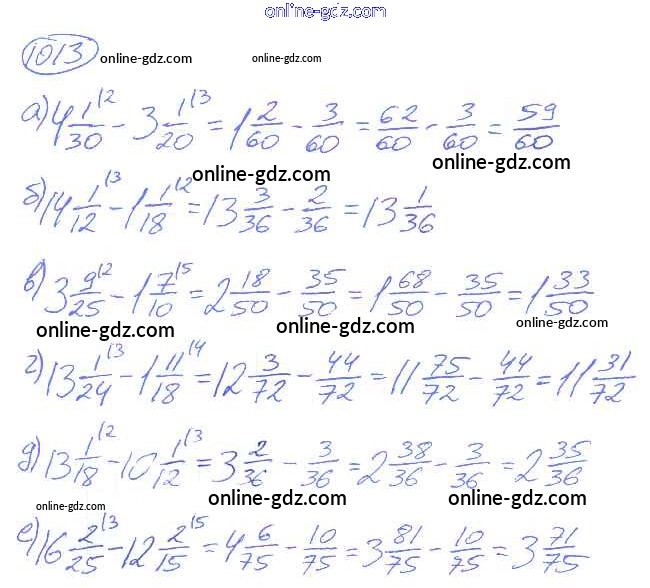 online-gdz.com
1013 online-gdz.com online-gdz.com
а) 4 1/30 |2 - 3 1/20 |3 = 1 2/60 - 3/60 = 62/60 - 3/60 = 59/60
online-gdz.com online-gdz.com
б) 14 1/12 |3 - 1 1/18 |2 = 13 3/36 - 2/36 = 13 1/36
в) 3 9/25 |2 - 1 7/10 |5 = 2 18/50 - 35/50 = 1 68/50 - 35/50 = 1 33/50
online-gdz.com online-gdz.com online-gdz.com
г) 13 1/24 |3 - 1 11/18 |4 = 12 3/72 - 44/72 = 11 75/72 - 44/72 = 11 31/72
д) 13 1/18 |2 - 10 1/12 |3 = 3 2/36 - 3/36 = 2 38/36 - 3/36 = 2 35/36
online-gdz.com online-gdz.com online-gdz.com
е) 16 2/25 |3 - 12 2/15 |5 = 4 6/75 - 10/75 = 3 81/75 - 10/75 = 3 71/75